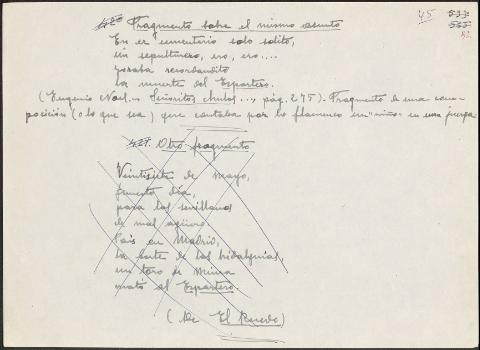 420 Fragmento sobre el mismo asunto
45 533
535
52
En er sementerio solo solito,
un sepulturero, ero, ero...
yoraba recordandito
la muerte del Espartero.
(Eugenio Noel.- Señoritos chulos..., pág. 275). Fragmento de una com-
posición (o lo que sea) que cantaba por lo flamenco un "niño" en una juerga
421. Otro fragmento
Veintisiete de mayo,
funesto día,
para los sevillanos
de mal agüero.
en Madrid,
la corte de las hidalguías,
un toro de Miura
mató al Espartero.
(De El Ruedo)